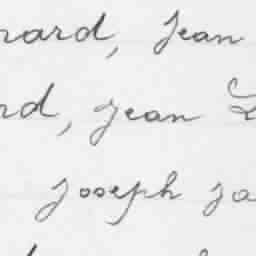 nard, Jean
rd, Jean L
Joseph Ja